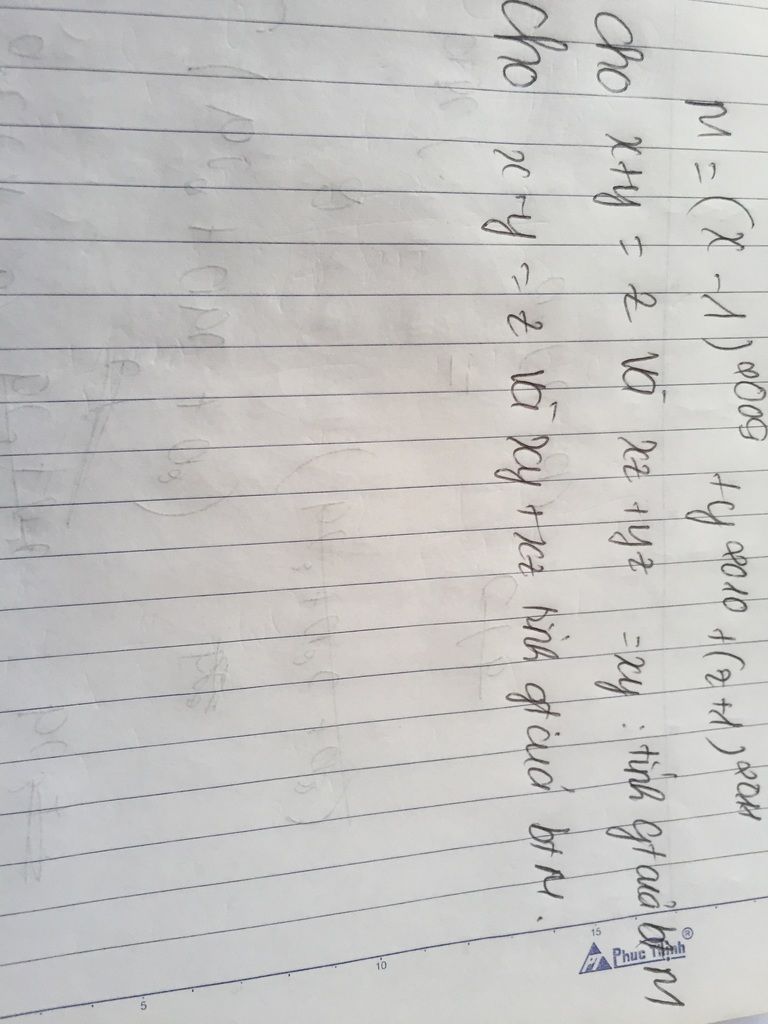 M = (x - 1)²⁰⁰⁹ + y²⁰¹⁰ + (z + 1)²⁰¹¹
Cho x + y = z và xz + yz = xy : tính gt của bt M
Cho x - y = z và xy + xz tính gt của bt M.
Phuc Thinh®
15
10
5